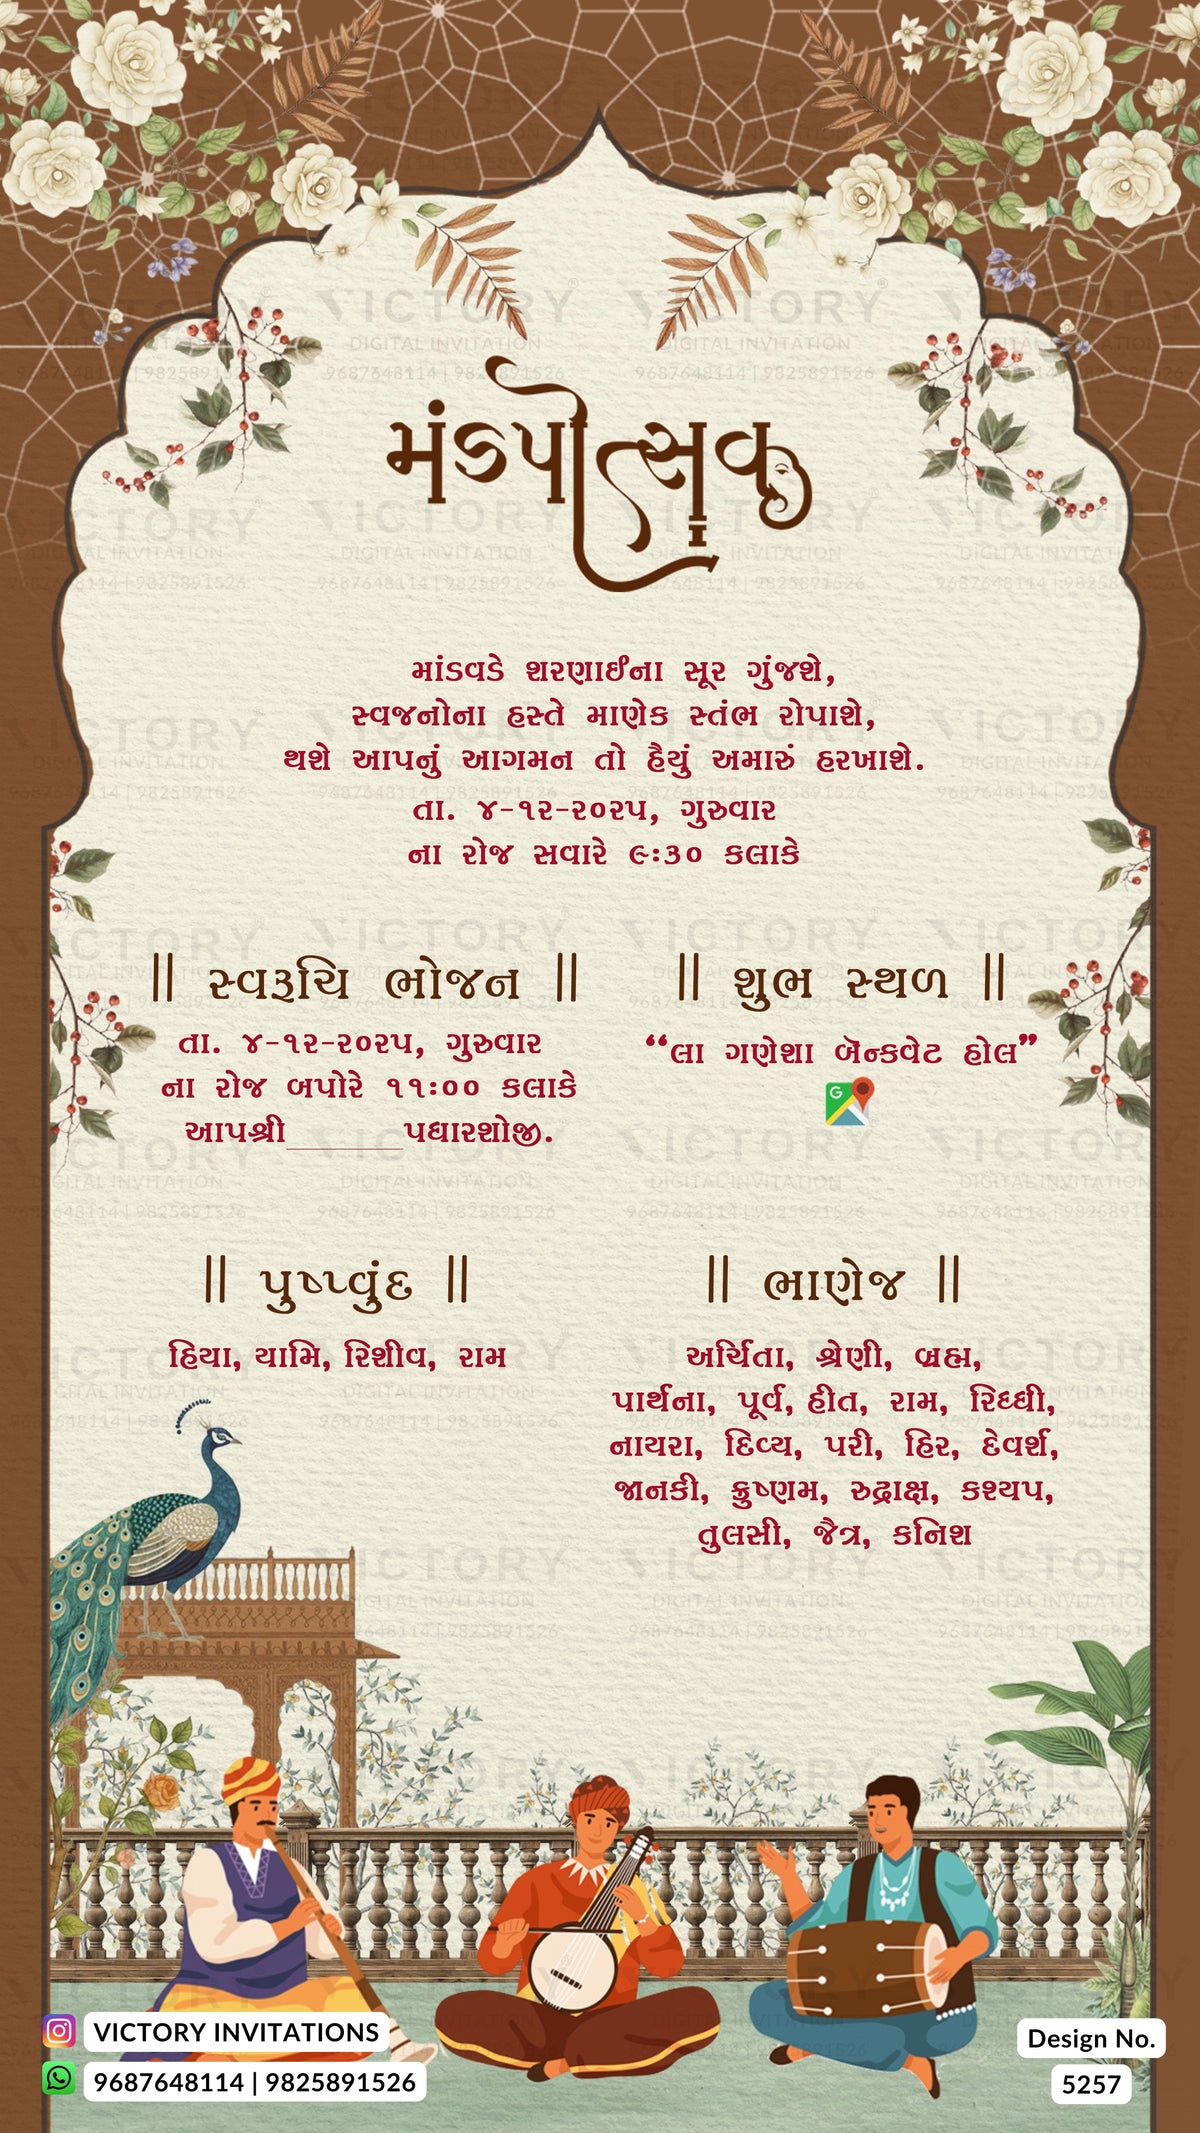 મંડપોત્સવ
માંડવડે શરણાઈના સૂર ગુંજશે,
સ્વજનોના હસ્તે માણેક સ્તંભ રોપાશે,
થશે આપનું આગમન તો હૈયું અમારું હરખાશે.
તા. ૪-૧૨-૨૦૨૫, ગુરુવાર
ના રોજ સવારે ૯:૩૦ કલાકે
|| સ્વરૂચિ ભોજન ||
તા. ૪-૧૨-૨૦૨૫, ગુરુવાર
ના રોજ બપોરે ૧૧:૦૦ કલાકે
આપશ્રી________પધારશોજી.
|| શુભ સ્થળ ||
“લા ગણેશા બૅન્કવેટ હોલ”
|| પુષ્પવુંદ ||
હિયા, યામિ, રિશીવ, રામ
|| ભાણેજ ||
અર્ચિતા, શ્રેણી, બ્રહ્મ,
પાર્થના, પૂર્વ, હીત, રામ, રિધ્ધી,
નાયરા, દિવ્ય, પરી, હિર, દેવર્શ,
જાનકી, ક્રુષ્ણમ, રુદ્રાક્ષ, કશ્યપ,
તુલસી, જૈત્ર, કનિશ
VICTORY INVITATIONS
9687648114 | 9825891526
Design No.
5257
VICTORY
DIGITAL INVITATION
9687648114 | 9825891526